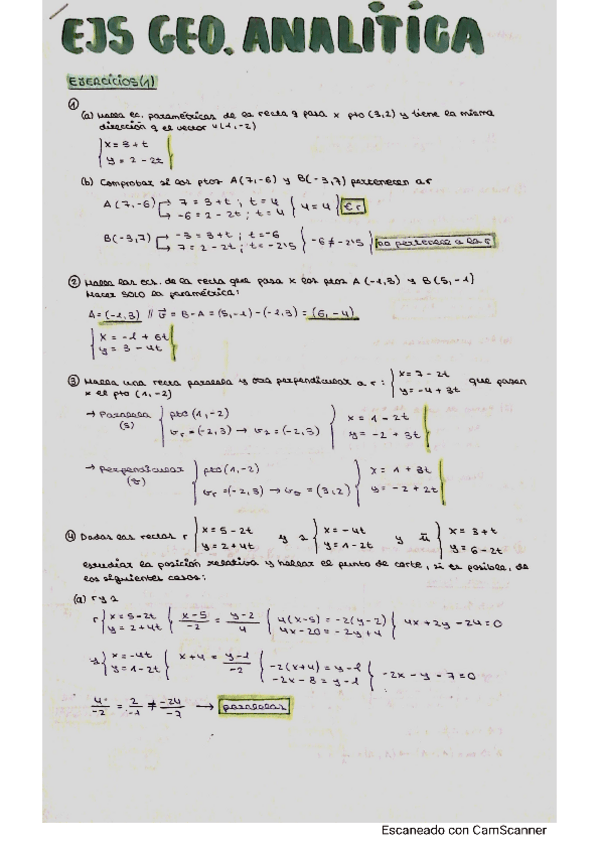 EJS GEO. ANALÍTICA
EJERCICIOS (1)
①
(a) Halla ec. paramétricas de la recta q pasa x pto (3,2) y tiene la misma
dirección q el vector u(1,-2)
x = 3 + t
y = 2 - 2t
(b) Comprobar si los ptos A(7,-6) y B(-3,7) pertenecen a r
A(7,-6) → 7 = 3 + t ; t = 4
→ -6 = 2 - 2t ; t = 4 } 4 = 4 } ∈ r
B(-3,7) → -3 = 3 + t ; t = -6
→ 7 = 2 - 2t ; t = -2'5 } -6 ≠ -2'5 } no pertenece a la r
② Halla las ecs. de la recta que pasa x los ptos A(-1,3) y B(5,-1)
Hacer solo la paramétrica:
A = (-1,3) // v = B - A = (5,-1) - (-1,3) = (6,-4)
x = -1 + 6t
y = 3 - 4t
③ Halla una recta paralela y otra perpendicular a r : { x = 7 - 2t
y = -4 + 3t que pasen
x el pto (1,-2)
→ Paralela { pto (1,-2) { x = 1 - 2t
(s) vr = (-2,3) → vs = (-2,3) y = -2 + 3t
→ Perpendicular { pto (1,-2) { x = 1 + 3t
vr = (-2,3) → = (3,2) y = -2 + 2t
④ Dadas las rectas r { x = 5 - 2t y s { x = -4t y { x = 3 + t
y = 2 + 4t y = 1 - 2t y = 6 - 2t
estudiar la posición relativa y hallar el punto de corte, si es posible, de
los siguientes casos:
(a) r y s
r { x = 5 - 2t { x-5/-2 = y-2/4 { 4(x-5) = -2(y-2) { 4x + 2y - 24 = 0
y = 2 + 4t 4x - 20 = -2y + 4
{ x = -4t { x + 4 = y-1/-2 { -2(x+4) = y - 1 { -2x - y - 7 = 0
y = 1 - 2t -2x - 8 = y - 1
4/-2 = 2/-1 ≠ -24/-7 → paralelas
Escaneado con CamScanner